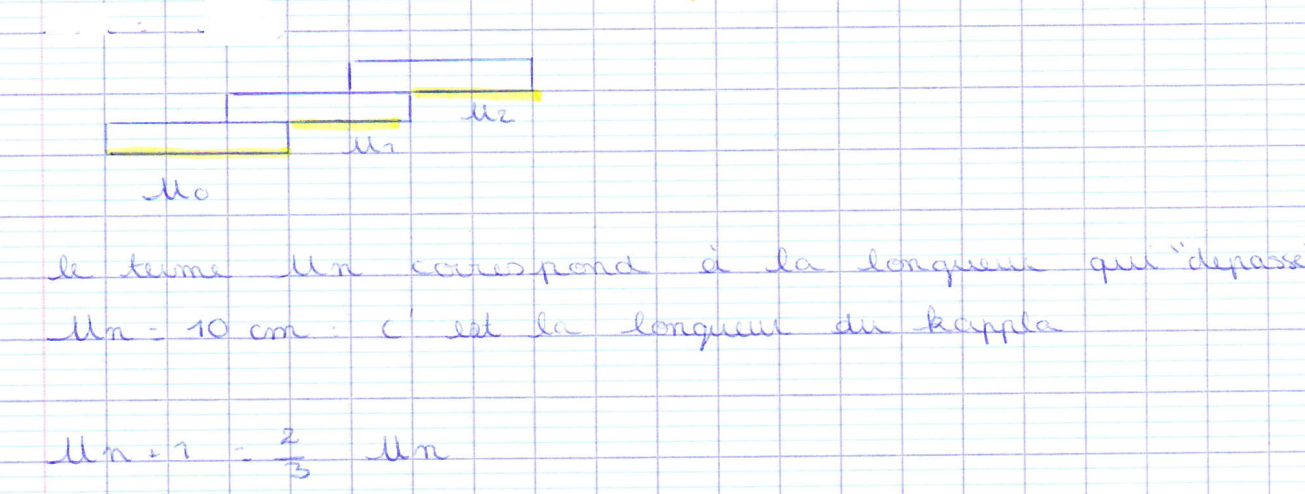 U2
U1
U0
le terme Un correspond à la longueur qui "depasse
Un = 10 cm : c'est la longueur du kappla
Un+1 = 2/3 Un